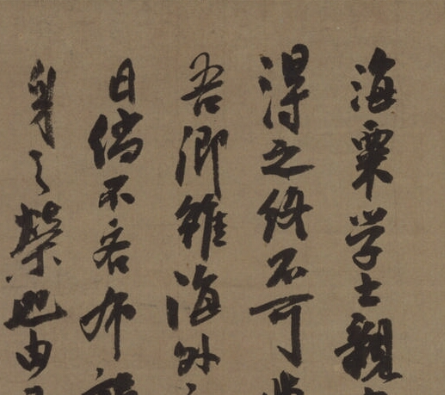 海粟学士親
得之終不可
吾卿雖海外
日倘不吝布
身之榮也由